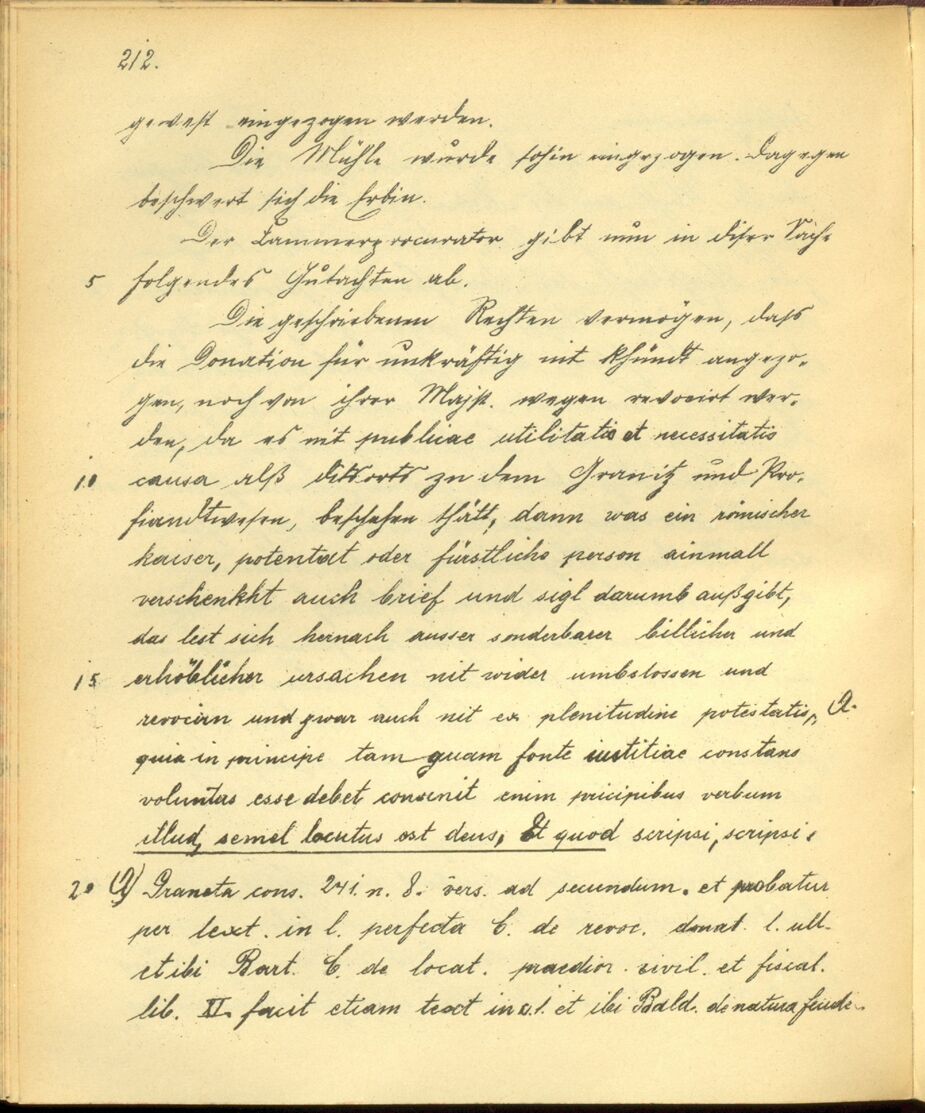 212.
gewest eingezogen werden.
Die Mühle wurde sohin eingezogen. Dagegen
beschwert sich die Erbin.
Der Kammerprocurator gibt nun in diser Sache
5 folgendes Gutachten ab.
Die geschriebenen Rechten vermögen, dass
die Donation für unkräftig nit khündt angezo-
gen, noch von ihrer Majst. wegen revocirt wer-
den, da es nit publicae utilitatis et necessitatis
10 causa alß ditsorts zu dem Granitz und Pro-
fiandtwesen, beschehen thätt, dann was ein römischer
kaiser, potentat oder fürstliche person ainmall
verschenkht auch brief und sigl darumb außgibt,
das lest sich hernach ausser sonderbarer billicher und
15 erhöblicher ursachen nit wider umbstossen und
revocirn und zwar auch nit ex plenitudine potestatis, A.
quia in principe tam quam fonte iustitiae constans
voluntas esse debet convenit enim pricipibus verbum
illud, semel locutus est deus, Et quod scripsi, scripsi.
20 A) Graneta cons. 241. n. 8. vers. ad secundum. et probatur
per text. in l. perfecta C. de revoc. donat. l. ult.
et ibi Bart. C. de locat. praedior. civil. et fiscal.
lib. XI. facit etiam text in c. 1. et ibi Bald. de natura feudi.